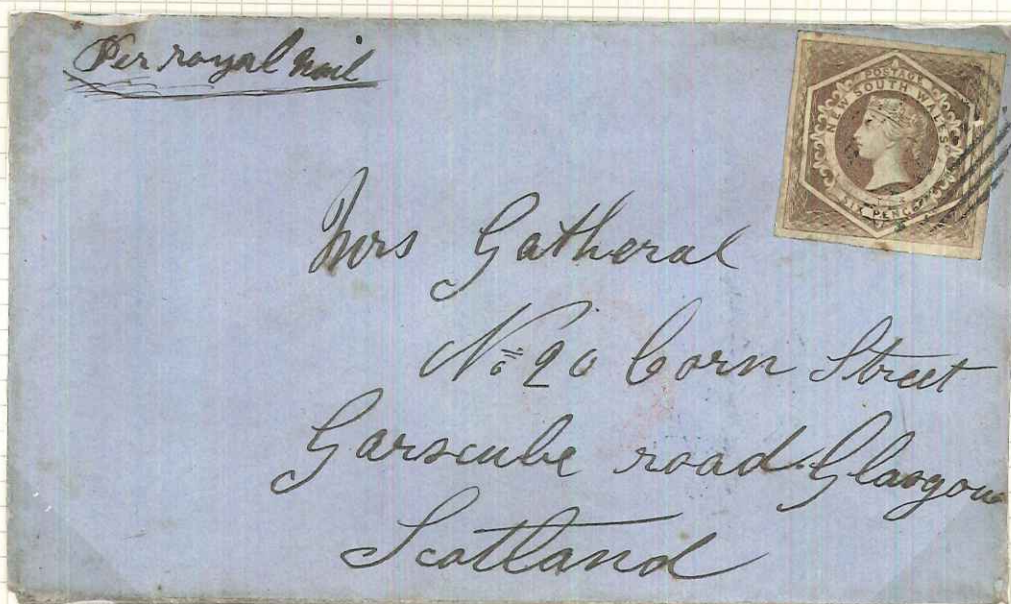 Per royal mail
POSTAGE
NEW SOUTH WALES
SIX PENCE
Mrs Gatheral
No 20 Corn Street
Garscube road Glasgow
Scotland